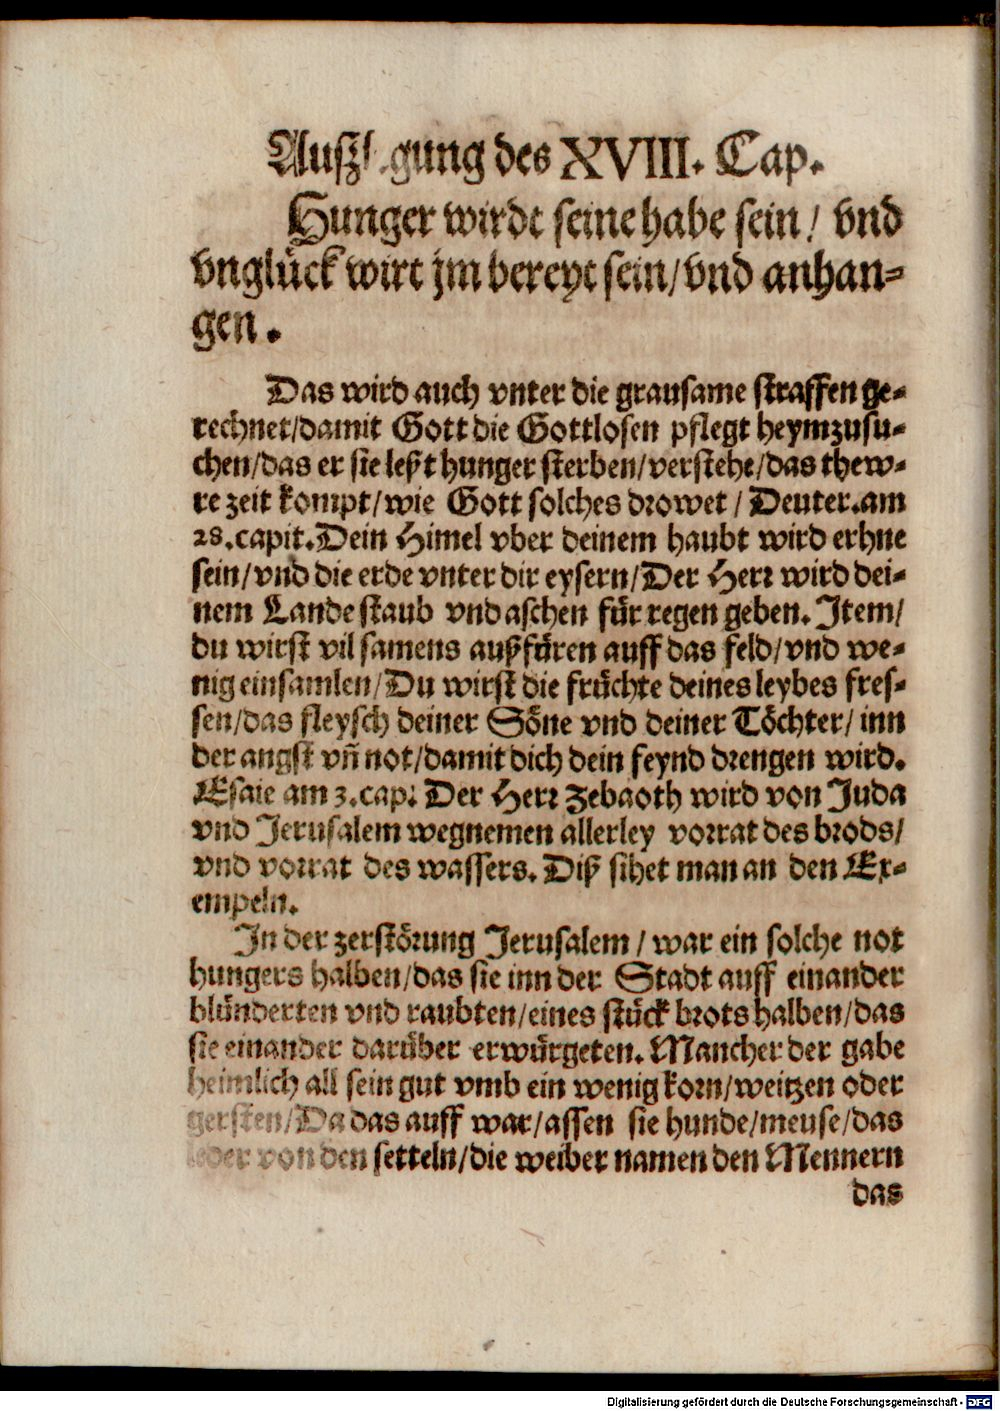 Auszlegung des XVIII. Cap.
Hunger wirdt seine habe sein / vnd
vnglück wirt jm bereyt sein/vnd anhan-
gen.
Das wird auch vnter die grausame straffen ge-
rechnet/damit Gott die Gottlosen pflegt heymzusu-
chen/das er sie leßt hunger sterben/verstehe/das thew-
re zeit kompt/wie Gott solches drowet / Deuter.am
28.capit.Dein Himel vber deinem haubt wird erhne
sein/vnd die erde vnter dir eysern/Der Herr wird dei-
nem Lande staub vnd aschen für regen geben. Item/
du wirst vil samens außfüren auff das feld/vnd we-
nig einsamlen/Du wirst die früchte deines leybes fres-
sen/das fleysch deiner Söne vnd deiner Töchter/ inn
der angst vñ not/damit dich dein feynd drengen wird.
Esaie am 3.cap: Der Herr Zebaoth wird von Juda
vnd Jerusalem wegnemen allerley vorrat des brods/
vnd vorrat des wassers. Diß sihet man an den Ex-
empeln.
In der zerstörung Jerusalem / war ein solche not
hungers halben/das sie inn der Stadt auff einander
blünderten vnd raubten/eines stück brots halben/das
sie einander darüber erwürgeten. Mancher der gabe
heimlich all sein gut vmb ein wenig korn/weitzen oder
gersten/Da das auff war/assen sie hunde/meuse/das
leder von den setteln/die weiber namen den Mennern
das
Digitalisierung gefördert durch die Deutsche Forschungsgemeinschaft - DFG